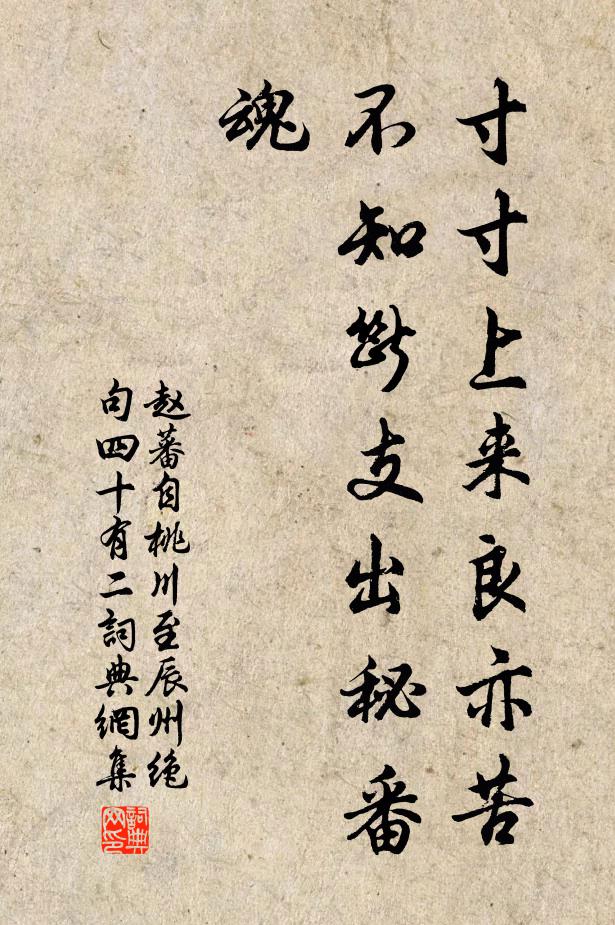 寸寸上来良亦苦
不知斷支出秘番
魂
赵蕃自桃川至辰州绝
句四十有二詞典網集
詞典网印